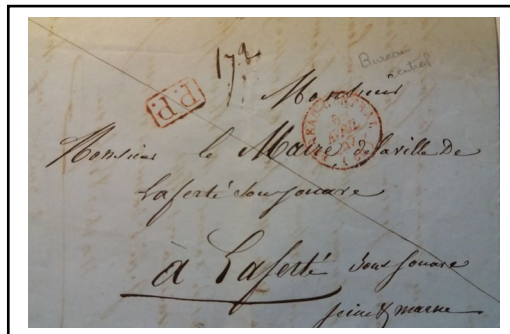 172
Bureau
central
P.P.
Monsieur
Monsieur le Maire de la ville De
Laferté sous jouare
à Laferté sous jouare
seine & marne